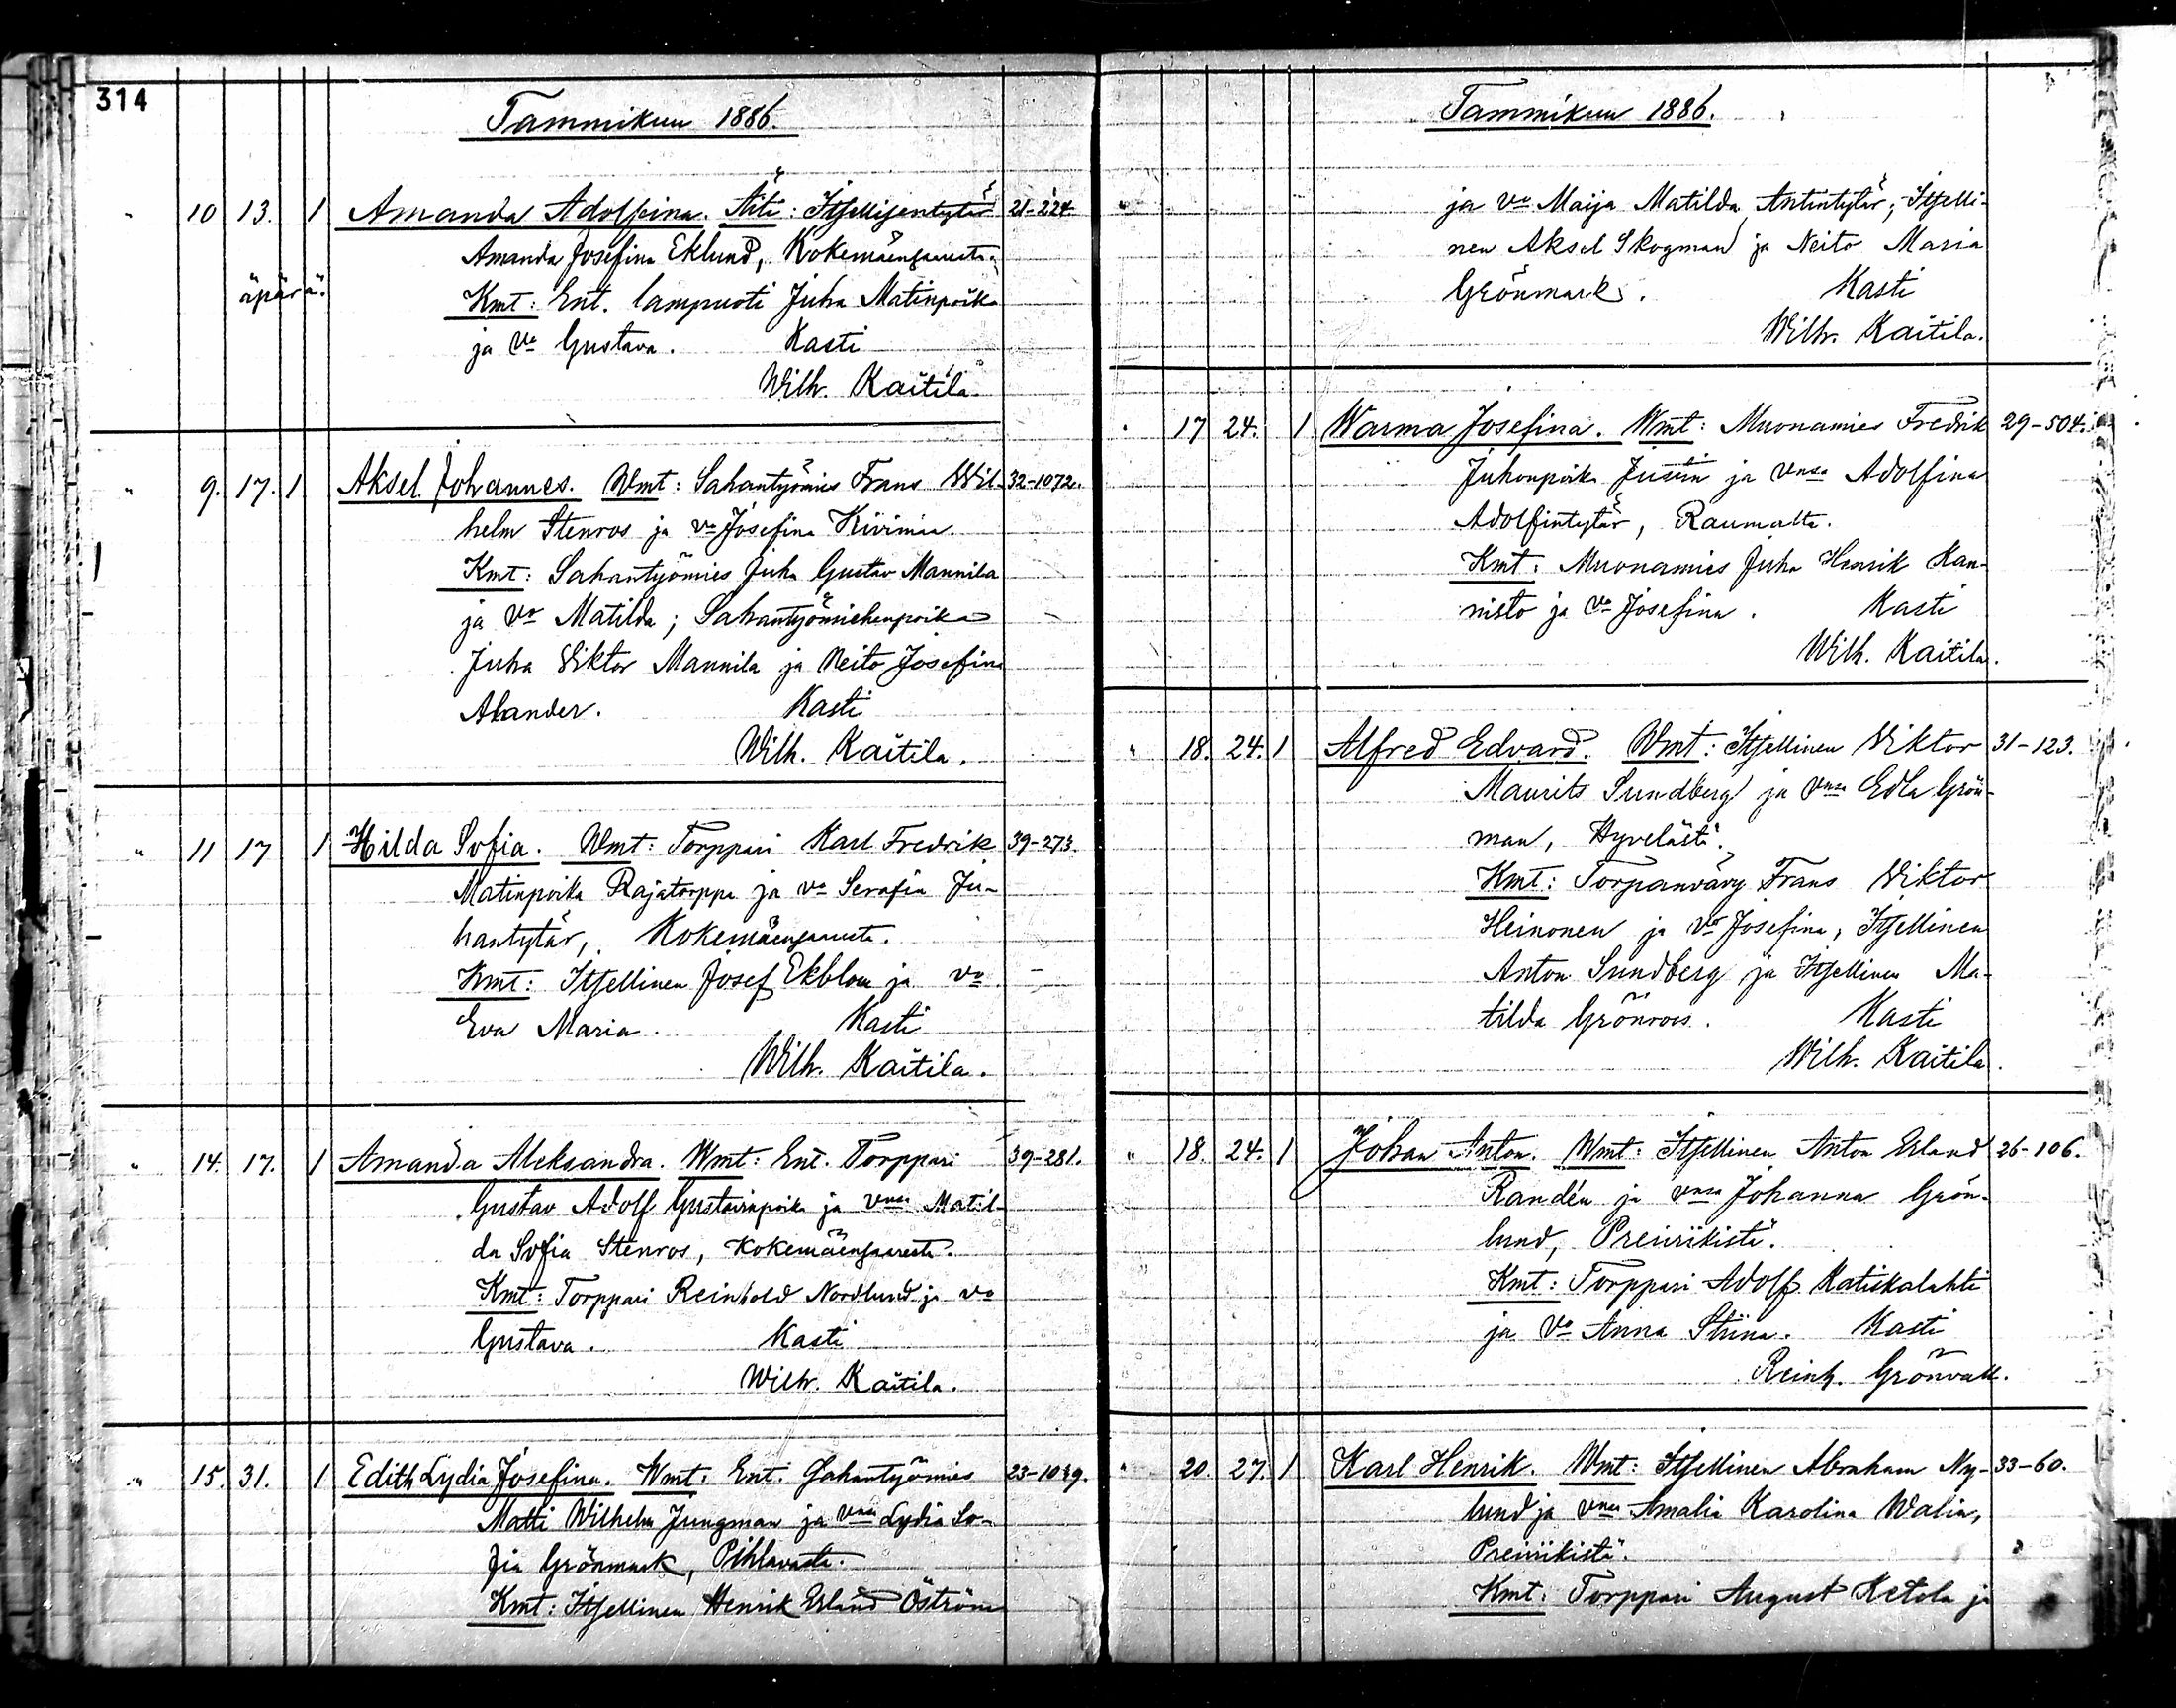 314
Tammikuu 1886.
" 10 13. 1 Amanda Adolfina. Äiti: Itsellisentytär 21-224.
Amanda Josefina Eklund, Kokemäensaaresta.
äpärä. Kmt: Ent. lampuoti Juha Matinpoika
ja Vo Gustava. Kasti
Wilh. Kaitila.
" 9. 17. 1 Aksel Johannes. Wmt: Sahantyömies Frans Wil- 32-1072.
helm Stenros ja vo Josefina Kivimaa.
Kmt: Sahantyömies Juha Gustav Mannila
ja Vo Matilda; Sahantyömiehenpoika
Juha Viktor Mannila ja Neito Josefina
Alander. Kasti
Wilh. Kaitila.
" 11 17 1 Hilda Sofia. Wmt: Torppari Karl Fredrik 39-273.
Matinpoika Rajatorppa ja vo Serafia Ju-
hantytär, Kokemäensaaresta.
Kmt: Itsellinen Josef Ekblom ja vo
Eva Maria. Kasti
Wilh. Kaitila.
" 14. 17. 1 Amanda Aleksandra. Wmt: Ent. Torppari 39-281.
Gustav Adolf Gustavinpoika ja vnsa Matil-
da Sofia Stenros, Kokemäensaaresta.
Kmt: Torppari Reinhold Nordlund ja vo
Gustava. Kasti
Wilh. Kaitila.
" 15. 31. 1 Edith Lydia Josefina. Wmt: Ent. Sahantyömies 23-1039.
Matti Wilhelm Jungman ja vnsa Lydia So-
fia Grönmark, Pihlavasta.
Kmt: Itsellinen Henrik Erland Öström
Tammikuu 1886.
" ja vo Maija Matilda Antintytär; Itselli-
nen Aksel Skogman ja Neito Maria
Grönmark. Kasti
Wilh. Kaitila.
" 17 24. 1 Warma Josefina. Wmt: Muonamies Fredrik 29-504.
Juhonpoika Juusin ja vnsa Adolfina
Adolfintytär, Raumalta.
Kmt: Muonamies Juha Henrik Kan-
nisto ja vo Josefina. Kasti
Wilh. Kaitila.
" 18. 24. 1 Alfred Edvard. Wmt: Itsellinen Viktor 31-123.
Maurits Sundberg ja vnsa Edla Grön-
man, Hyvelästä.
Kmt: Torpanvävy Frans Viktor
Heinonen ja Vo Josefina, Itsellinen
Anton Sundberg ja Itsellinen Ma-
tilda Grönroos. Kasti
Wilh. Kaitila.
" 18. 24. 1 Johan Anton. Wmt: Itsellinen Anton Erland 26-106.
Randén ja vnsa Johanna Grön-
lund, Preiviikistä.
Kmt: Torppari Adolf Katiskalahti
ja Vo Anna Stiina. Kasti
Reinh. Grönvall.
" 20. 27. 1 Karl Henrik. Wmt: Itsellinen Abraham Ny- 33-60.
lund ja vnsa Amalia Karolina Walin,
Preiviikistä.
Kmt: Torppari August Ketola ja